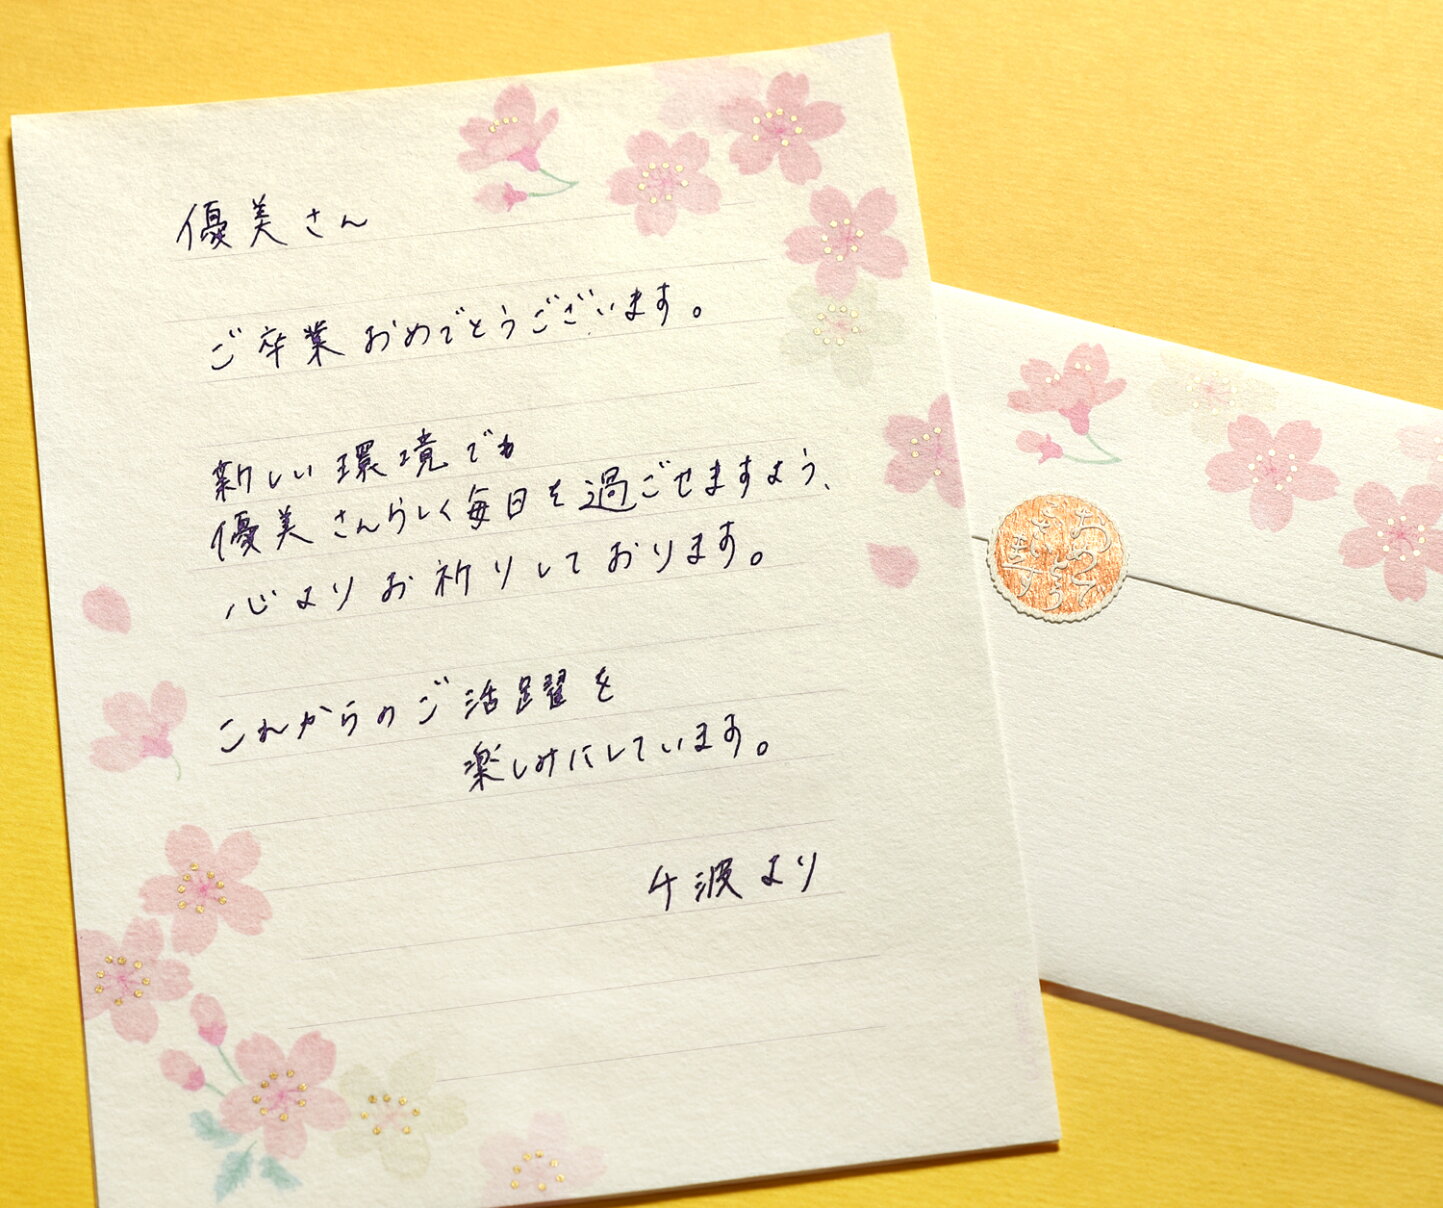 優美さん
ご卒業おめでとうございます。
新しい環境でも
優美さんらしく毎日を過ごせますよう、
心よりお祈りしております。
これからのご活躍を
楽しみにしています。
千波より
おめでとう
ございます